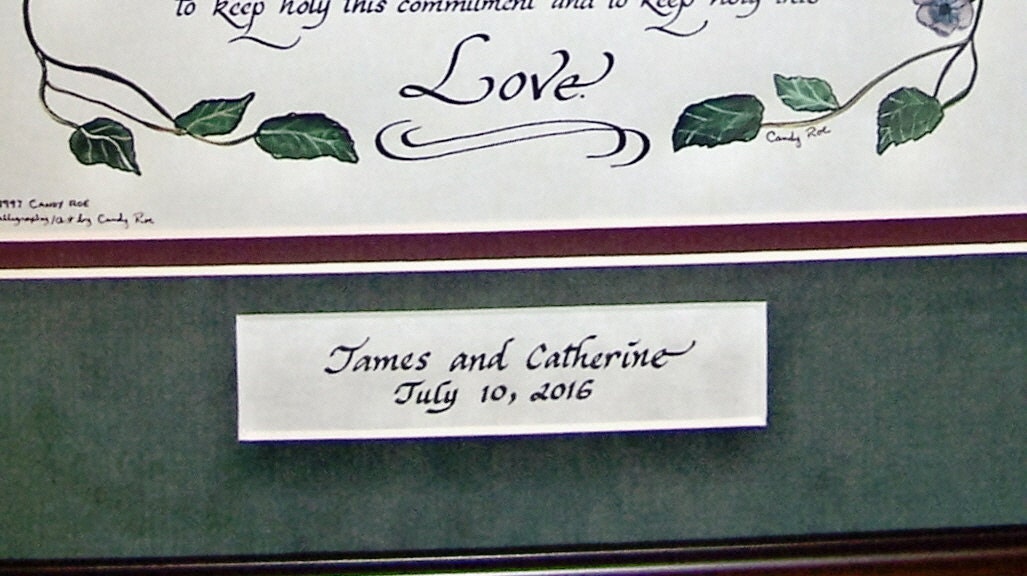 to keep holy this commitment and to keep holy this
Love.
Candy Roe
1997 CANDY ROE
Calligraphy/art by Candy Roe
James and Catherine
July 10, 2016